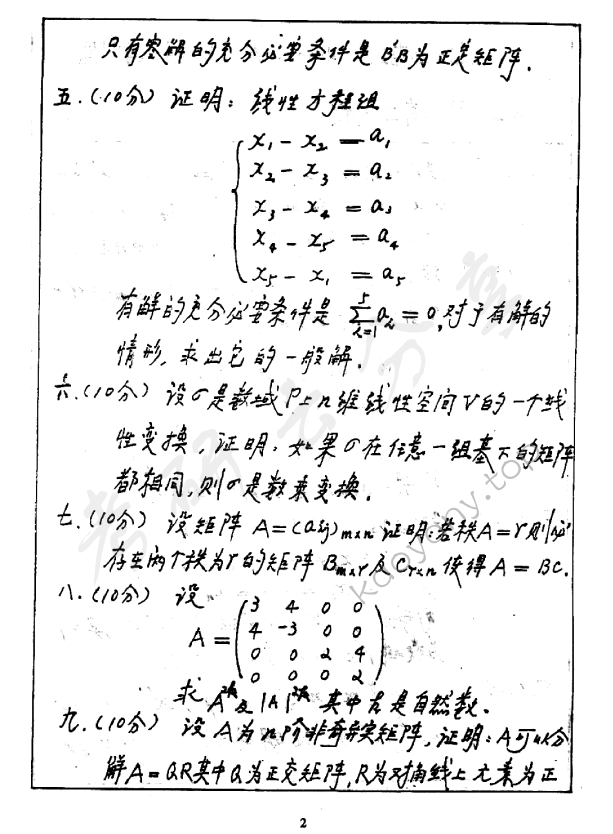 只有零解的充分必要条件是 B'B为正定矩阵.
五.(10分) 证明: 线性方程组
x₁ - x₂ = a₁
x₂ - x₃ = a₂
x₃ - x₄ = a₃
x₄ - x₅ = a₄
x₅ - x₁ = a₅
有解的充分必要条件是 ∑_{i=1}^{5} aᵢ = 0, 对于有解的
情形, 求出它的一般解.
六.(10分) 设σ是数域P上n维线性空间V的一个线
性变换, 证明: 如果σ在任意一组基下的矩阵
都相同, 则σ是数乘变换.
七.(10分) 设矩阵 A=(aij)m×n 证明: 若秩A=r则必
存在两个秩为r的矩阵 Bm×r及Cr×n 使得 A=BC.
八.(10分) 设
A = (3 4 0 0
4 -3 0 0
0 0 2 4
0 0 0 2)
求 A²ᵏ及|A|²ᵏ 其中k是自然数.
九.(10分) 设A为n阶非奇异实矩阵, 证明: A可以分
解A=QR其中Q为正交矩阵, R为对角线上元素为正
2
kaoyany.top